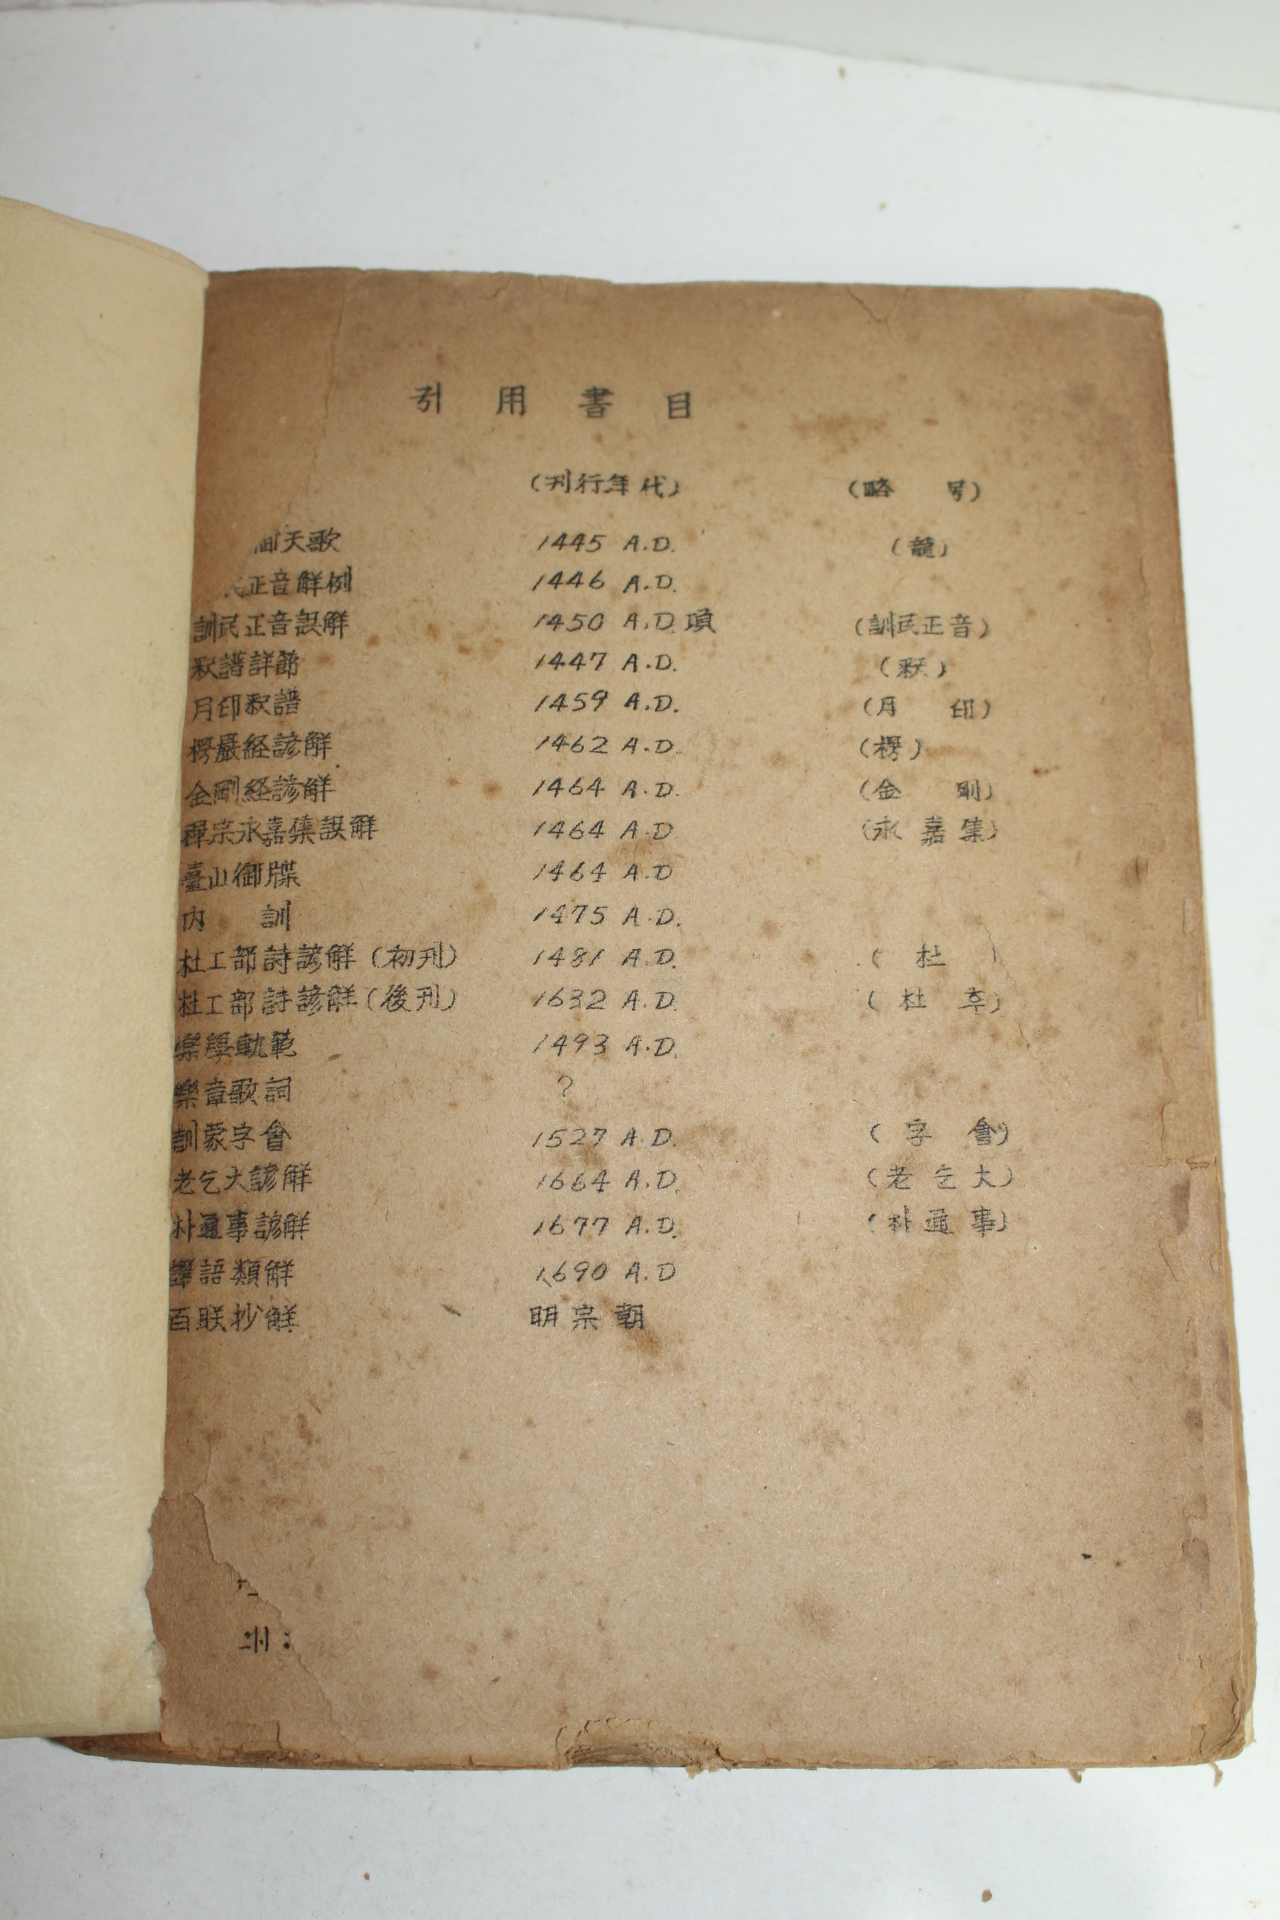 引用書目
(刊行年代) (略号)
御天歌 1445 A.D. (龍)
民正音解例 1446 A.D.
訓民正音諺解 1450 A.D.頃 (訓民正音)
釈譜詳節 1447 A.D. (釈)
月印釈譜 1459 A.D. (月印)
楞嚴経諺解 1462 A.D. (楞)
金剛経諺解 1464 A.D. (金剛)
禪宗永嘉集諺解 1464 A.D (永嘉集)
臺山御牒 1464 A.D
内訓 1475 A.D.
杜工部詩諺解(初刊) 1481 A.D. (杜)
杜工部詩諺解(後刊) 1632 A.D. (杜重)
樂學軌範 1493 A.D.
樂章歌詞 ?
訓蒙字會 1527 A.D. (字會)
老乞大諺解 1664 A.D. (老乞大)
朴通事諺解 1677 A.D. (朴通事)
譯語類解 1690 A.D
百联抄解 明宗朝